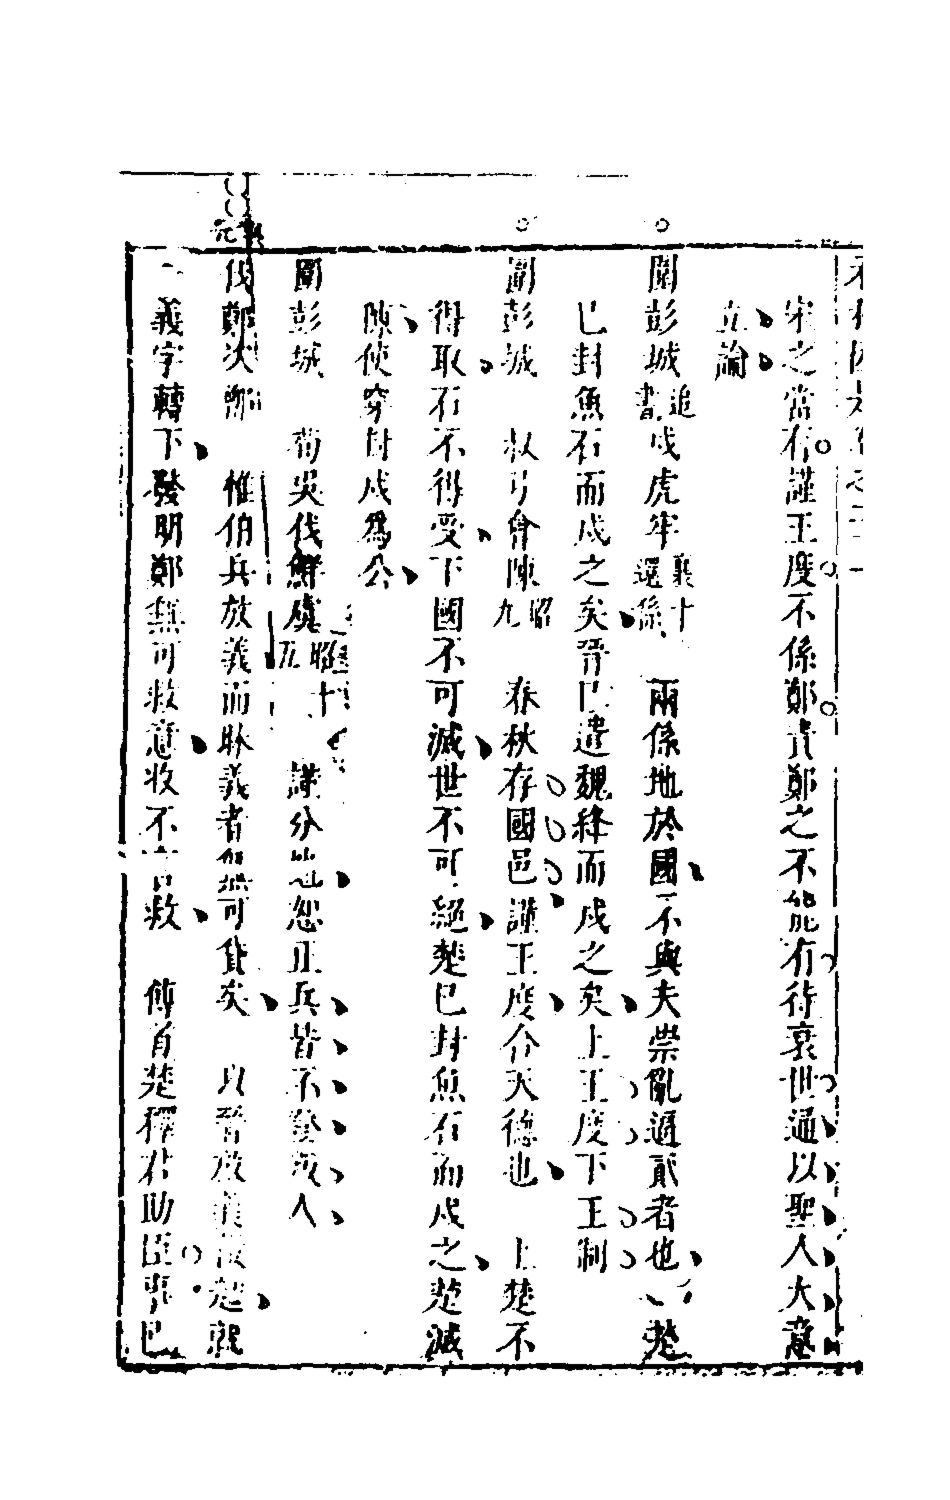 宋之當有謹王度不係鄭責鄭之不能有待衰世通以聖人大意
立論
圍彭城 追書戍虎牢 襄十還係 兩係地於國不與夫崇亂逼貳者也 楚
已封魚石而戍之矣晉已遣魏絳而戍之矣上王度下王制
圍彭城 叔弓會陳 昭九 春秋存國邑謹王度合天德也 上楚不
得取石不得受下國不可滅世不可絕楚已封魚石而戍之楚滅
陳使穿封戍為公
圍彭城 荀吳伐鮮虞 昭十五 謹分 恕正兵皆不 人
伐鄭次鄫 惟伯兵放義而昧義者無可貸矣 以晉放義 楚就
一義字轉下發明鄭無可救意收不言救 傳首楚釋君助臣事已